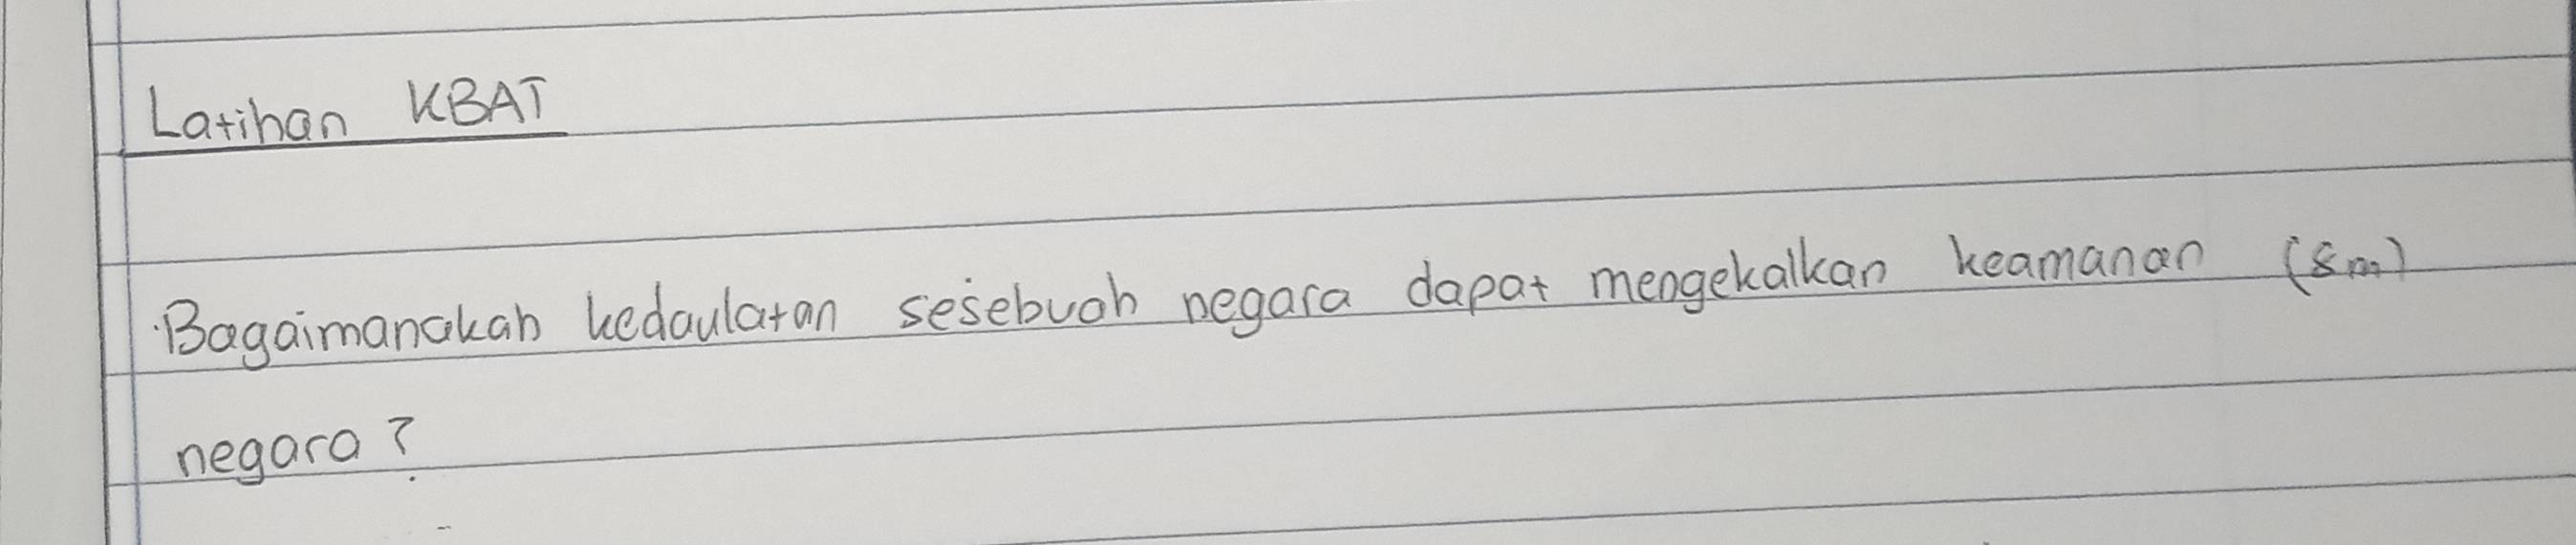 Latihan KBAT
Bagaimanakah kedaulatan sesebuah negara dapat mengekalkan keamanan (8m)
negara?